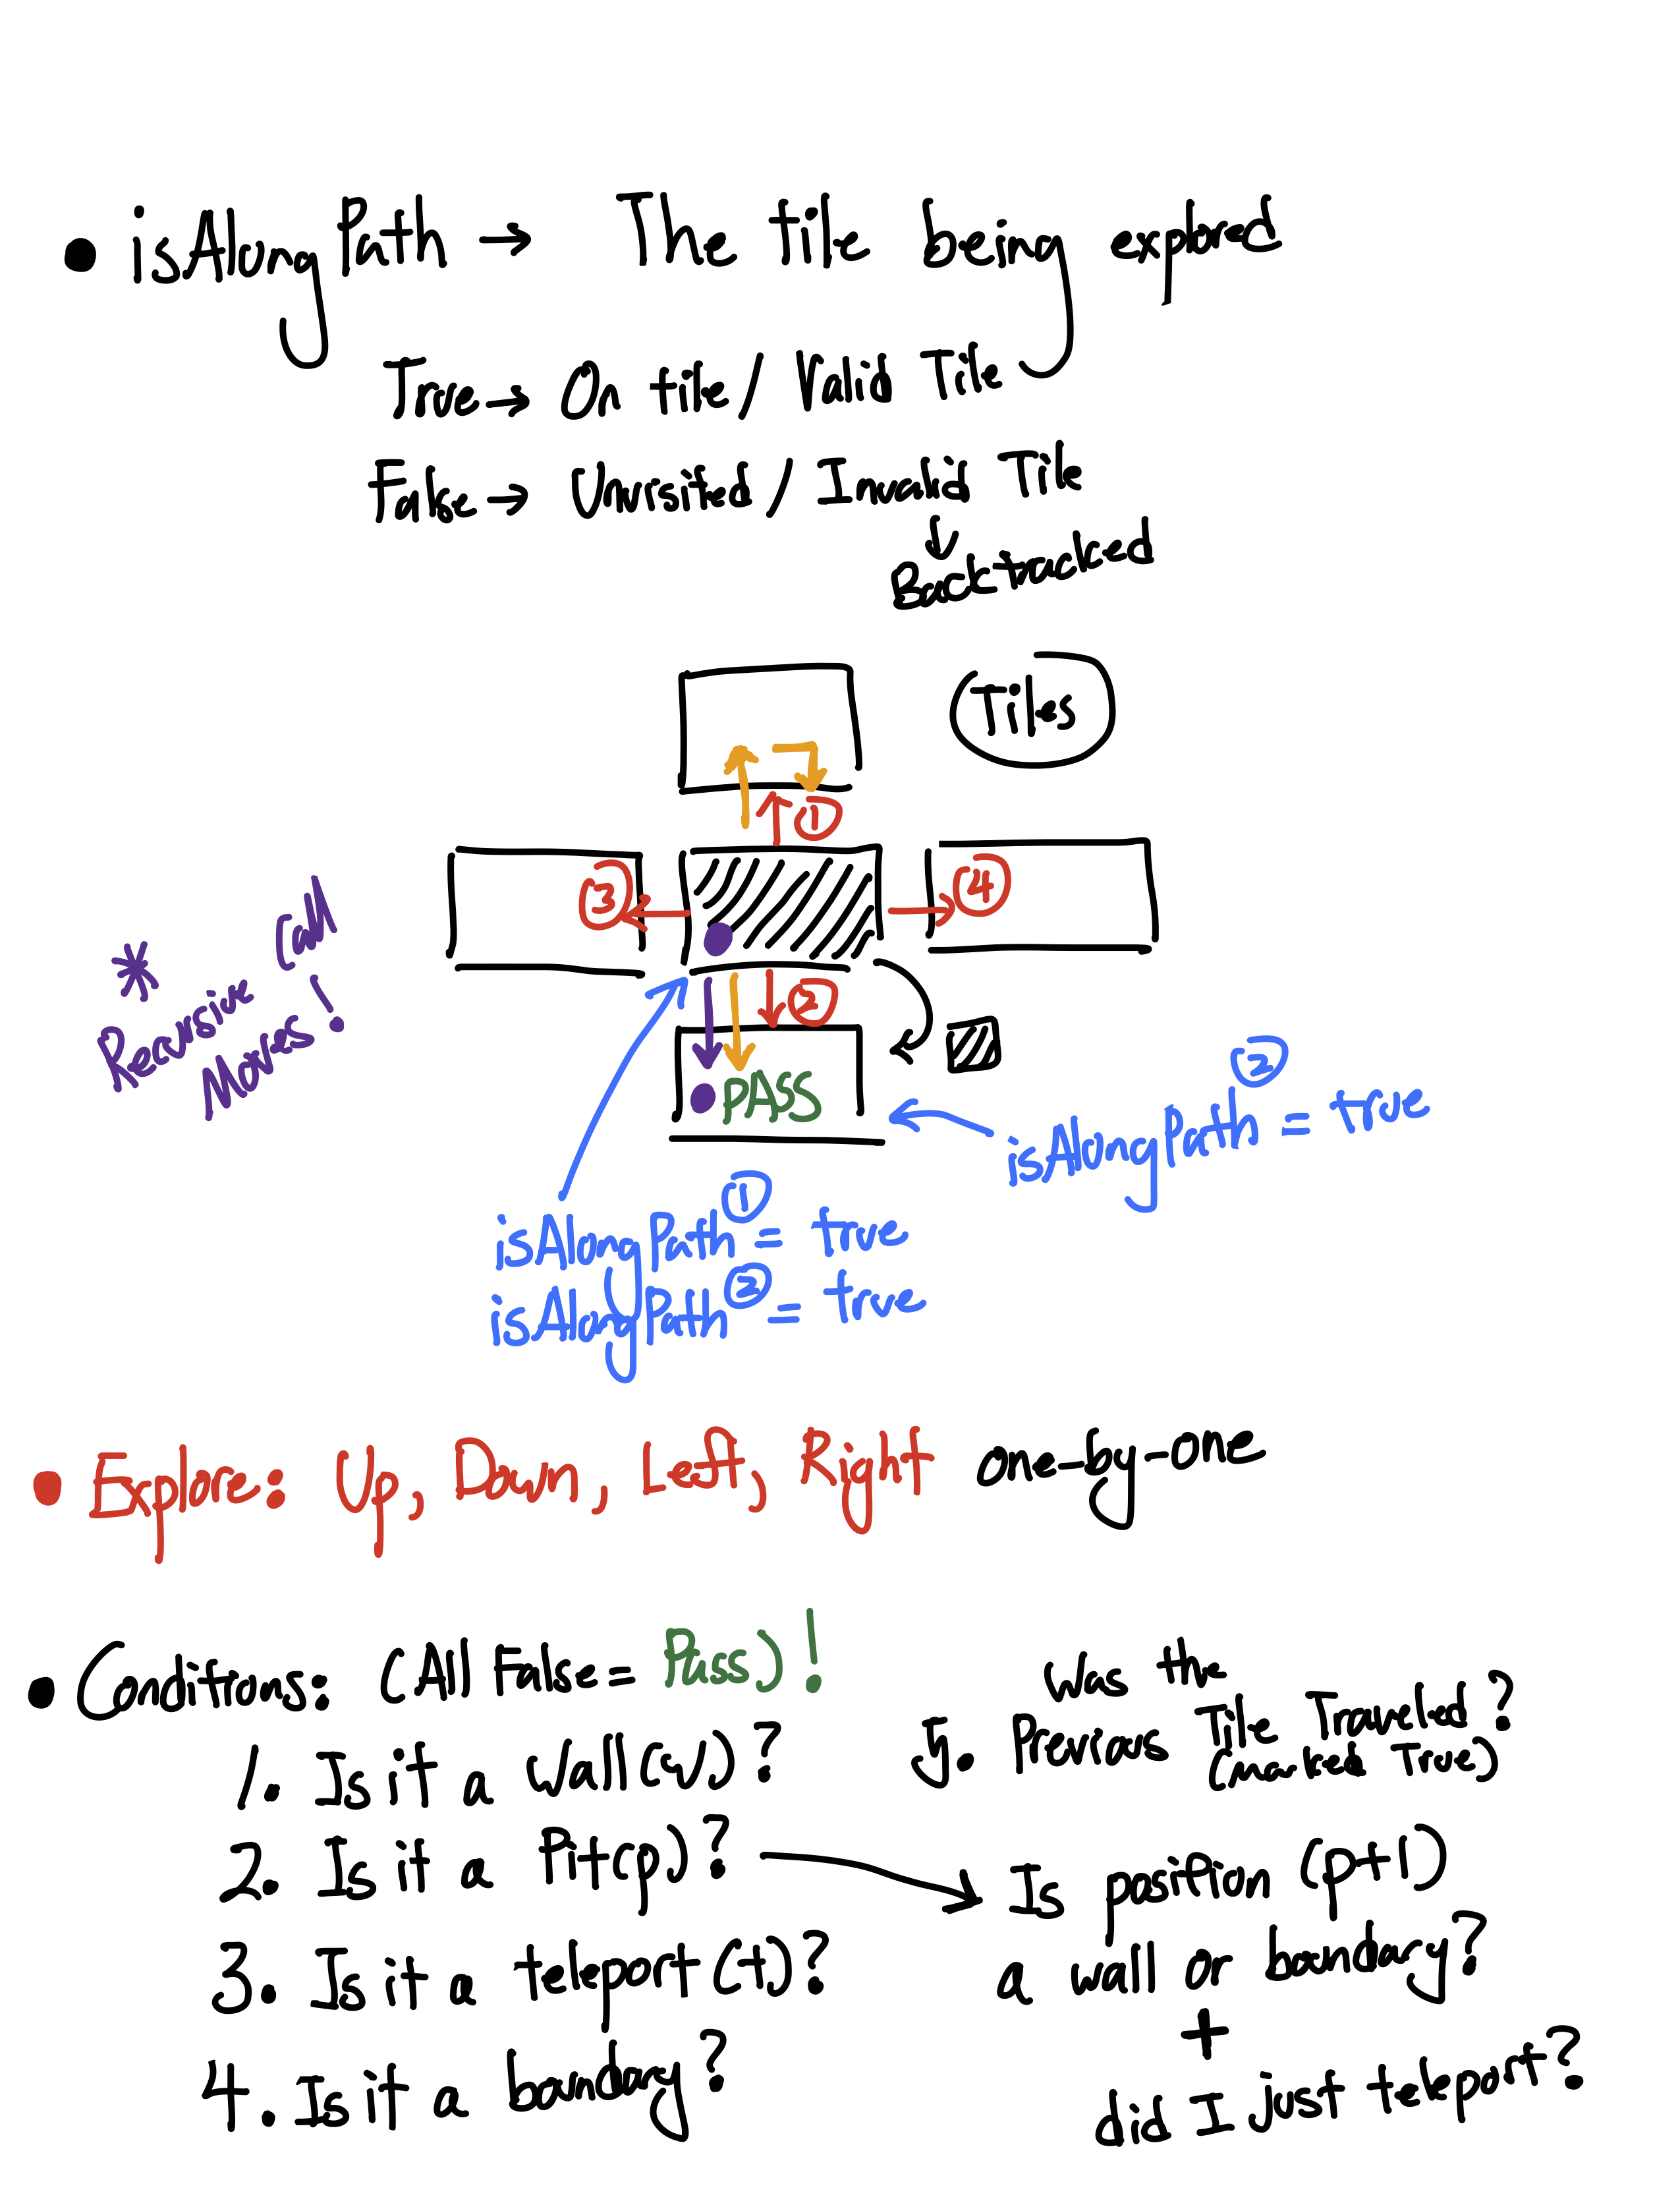 • isAlongPath → The tile being explored
True → On tile / Valid Tile
False → Unvisited / Invalid Tile
↓
Backtracked
Tiles
①
③
④
* Recursive Call
Moves!
②
PASS
isAlongPath② = true
isAlongPath① = true
isAlongPath② = true
• Explore: Up, Down, Left, Right one-by-one
• Conditions: (All False = Pass)!
1. Is it a Wall (w)?
2. Is it a Pit (p)? →
3. Is it a teleport (t)?
4. Is it a boundary?
5. Was the
Previous Tile Traveled?
(marked True)
Is position (p+1)
a wall or boundary?
+
did I just teleport?